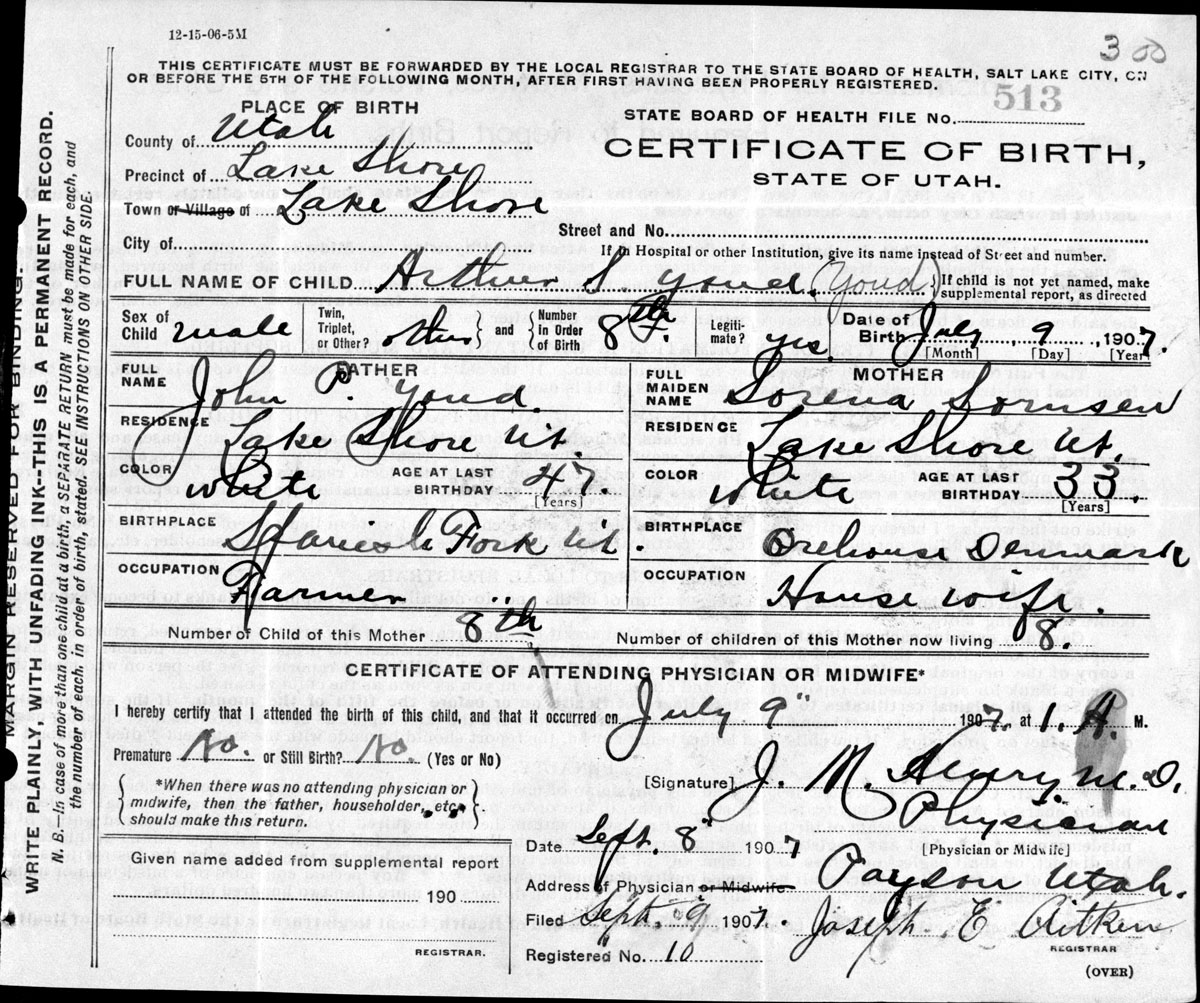 12-15-06-5M
3 00
THIS CERTIFICATE MUST BE FORWARDED BY THE LOCAL REGISTRAR TO THE STATE BOARD OF HEALTH, SALT LAKE CITY, ON
OR BEFORE THE 5TH OF THE FOLLOWING MONTH, AFTER FIRST HAVING BEEN PROPERLY REGISTERED.
513
PLACE OF BIRTH
STATE BOARD OF HEALTH FILE No.
County of Utah
CERTIFICATE OF BIRTH,
STATE OF UTAH.
Precinct of Lake Shore
Town or Village of Lake Shore
Street and No.
City of
If in Hospital or other Institution, give its name instead of Street and number.
FULL NAME OF CHILD Arthur S. Youd. (Youd) If child is not yet named, make supplemental report, as directed
Sex of Child male Twin, Triplet, or Other? other and Number in Order of Birth 8th Legitimate? yes. Date of Birth July 9, 1907. [Month] [Day] [Year]
FATHER
MOTHER
FULL NAME John P. Youd.
FULL MAIDEN NAME Sorena Sornsen
RESIDENCE Lake Shore Ut.
RESIDENCE Lake Shore Ut.
COLOR White AGE AT LAST BIRTHDAY 47. [Years]
COLOR White AGE AT LAST BIRTHDAY 33. [Years]
BIRTHPLACE Spanish Fork Ut.
BIRTHPLACE Orehouse Denmark
OCCUPATION Farmer
OCCUPATION House wife.
Number of Child of this Mother 8th
Number of children of this Mother now living 8.
CERTIFICATE OF ATTENDING PHYSICIAN OR MIDWIFE*
I hereby certify that I attended the birth of this child, and that it occurred on July 9" 1907. at 1. A. M.
Premature No. or Still Birth? No. (Yes or No)
*When there was no attending physician or
midwife, then the father, householder, etc.,
should make this return.
[Signature] J. M. M.D.
Physician
[Physician or Midwife]
Date Sept. 8" 1907
Address of Physician or Midwife Payson Utah.
Filed Sept. 9 1907. Joseph E Aitken
REGISTRAR
Registered No. 10
(OVER)
Given name added from supplemental report
190
REGISTRAR.
MARGIN RESERVED FOR BINDING.
WRITE PLAINLY, WITH UNFADING INK--THIS IS A PERMANENT RECORD.
N. B.--In case of more than one child at a birth, a SEPARATE RETURN must be made for each, and
the number of each, in order of birth, stated. SEE INSTRUCTIONS ON OTHER SIDE.